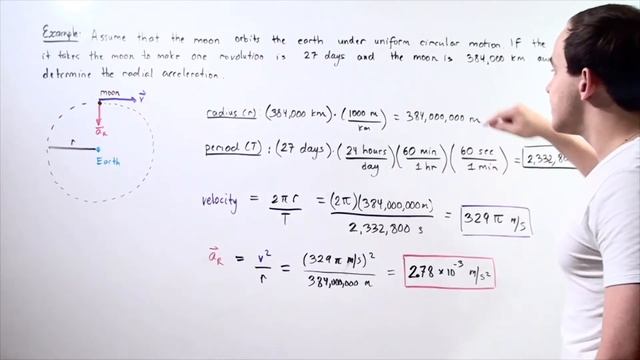 Example: Assume that the moon orbits the earth under uniform circular motion. If the
it takes the moon to make one revolution is 27 days and the moon is 384,000 km
determine the radial acceleration.
moon
v⃗
a⃗R
r
Earth
radius (r): (384,000 km) · (1000 m / km) = 384,000,000 m
period (T): (27 days) · (24 hours / day)(60 min / 1 hr)(60 sec / 1 min) = 2,332,800
velocity = 2πr / T = (2π)(384,000,000 m) / 2,332,800 s = 329π m/s
a⃗R = v² / r = (329π m/s)² / 384,000,000 m = 2.78 × 10⁻³ m/s²